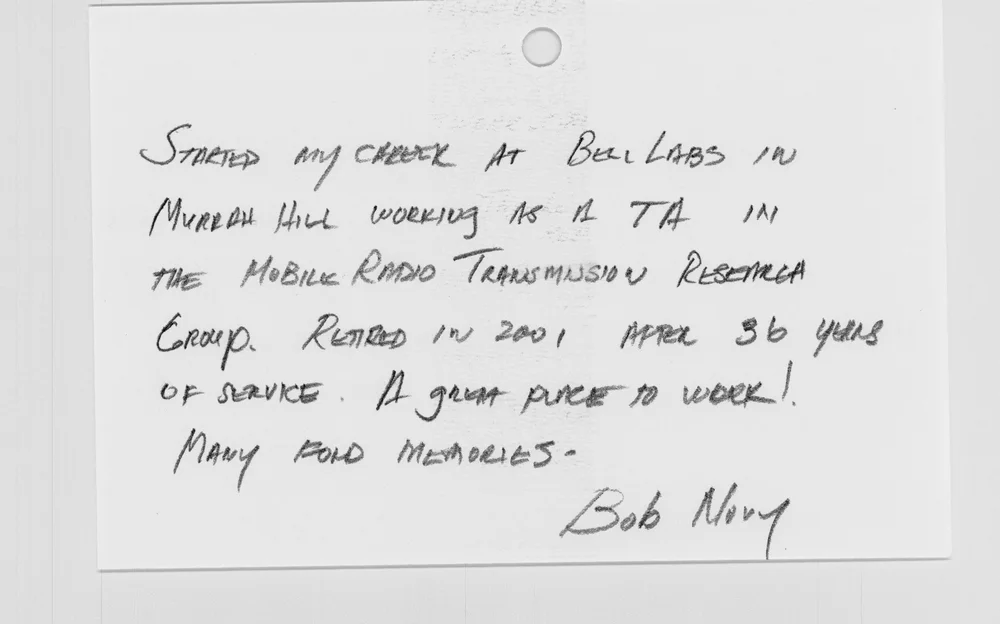 Started my career at Bell Labs in
Murray Hill working as a TA in
the Mobile Radio Transmission Research
Group. Retired in 2001 after 36 years
of service. A great place to work!
Many fond memories-
Bob